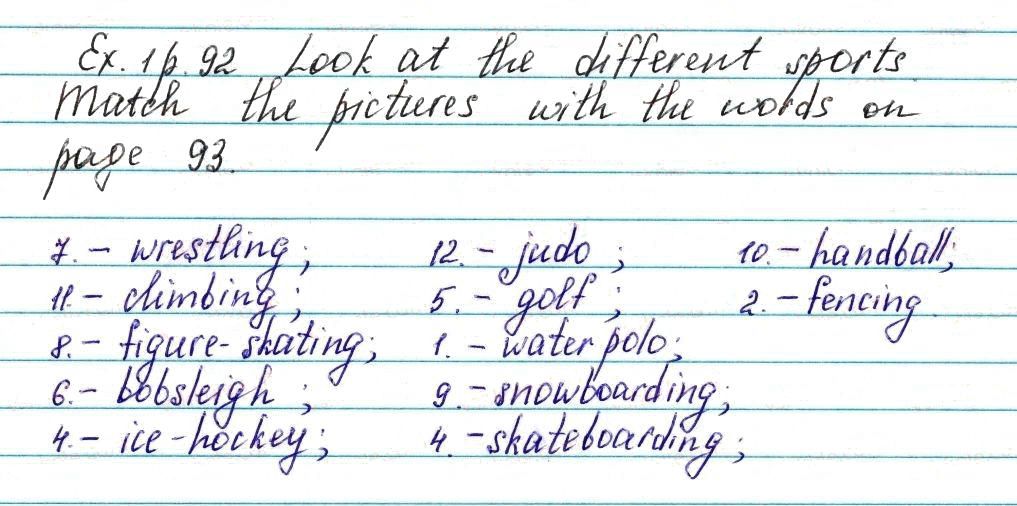 Ex. 1 p. 92 Look at the different sports.
Match the pictures with the words on
page 93.
7. - wrestling; 12. - judo; 10. - handball;
11. - climbing; 5. - golf; 2. - fencing.
8. - figure-skating; 1. - water polo;
6. - bobsleigh; 9. - snowboarding;
4. - ice-hockey; 4. - skateboarding;